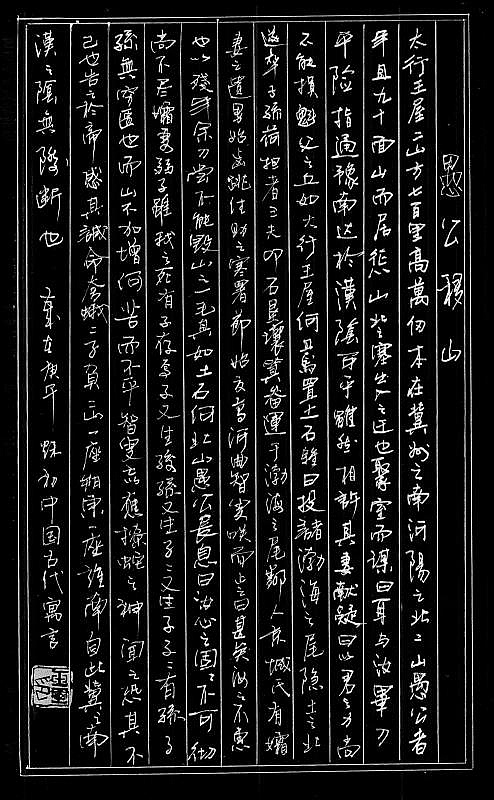 愚公移山
太行王屋二山方七百里高萬仞本在冀州之南河陽之北二山愚公者
年且九十面山而居惩山北之塞出入之迂也聚室而谋曰吾与汝畢力
平险指通豫南达於漢陰可乎雜然相許其妻献疑曰以君之力尚
不能損魁父之丘如太行王屋何且焉置土石雜曰投諸渤海之尾隐土之北
遂率子孫荷担者三夫叩石墾壤箕畚運于渤海之尾鄰人京城氏有孀
妻之遺男始齿跳往助之寒暑節始反焉河曲智叟笑而止之曰甚矣汝之不惠
也以殘年余力尝不能毁山之一毛其如土石何北山愚公長息曰汝心之固固不可彻
尚不若孀妻弱子雖我之死有子存焉子又生孫孫又生子子又生子子又有孫子
孫無穷匮也而山不加增何苦而不平智叟亡應操蛇之神聞之恐其不
己也告之於帝感其誠命夸蛾二子負二山一座朔東一座雍南自此冀之南
漢之陰無隴断也 歲在庚午 中国古代寓言